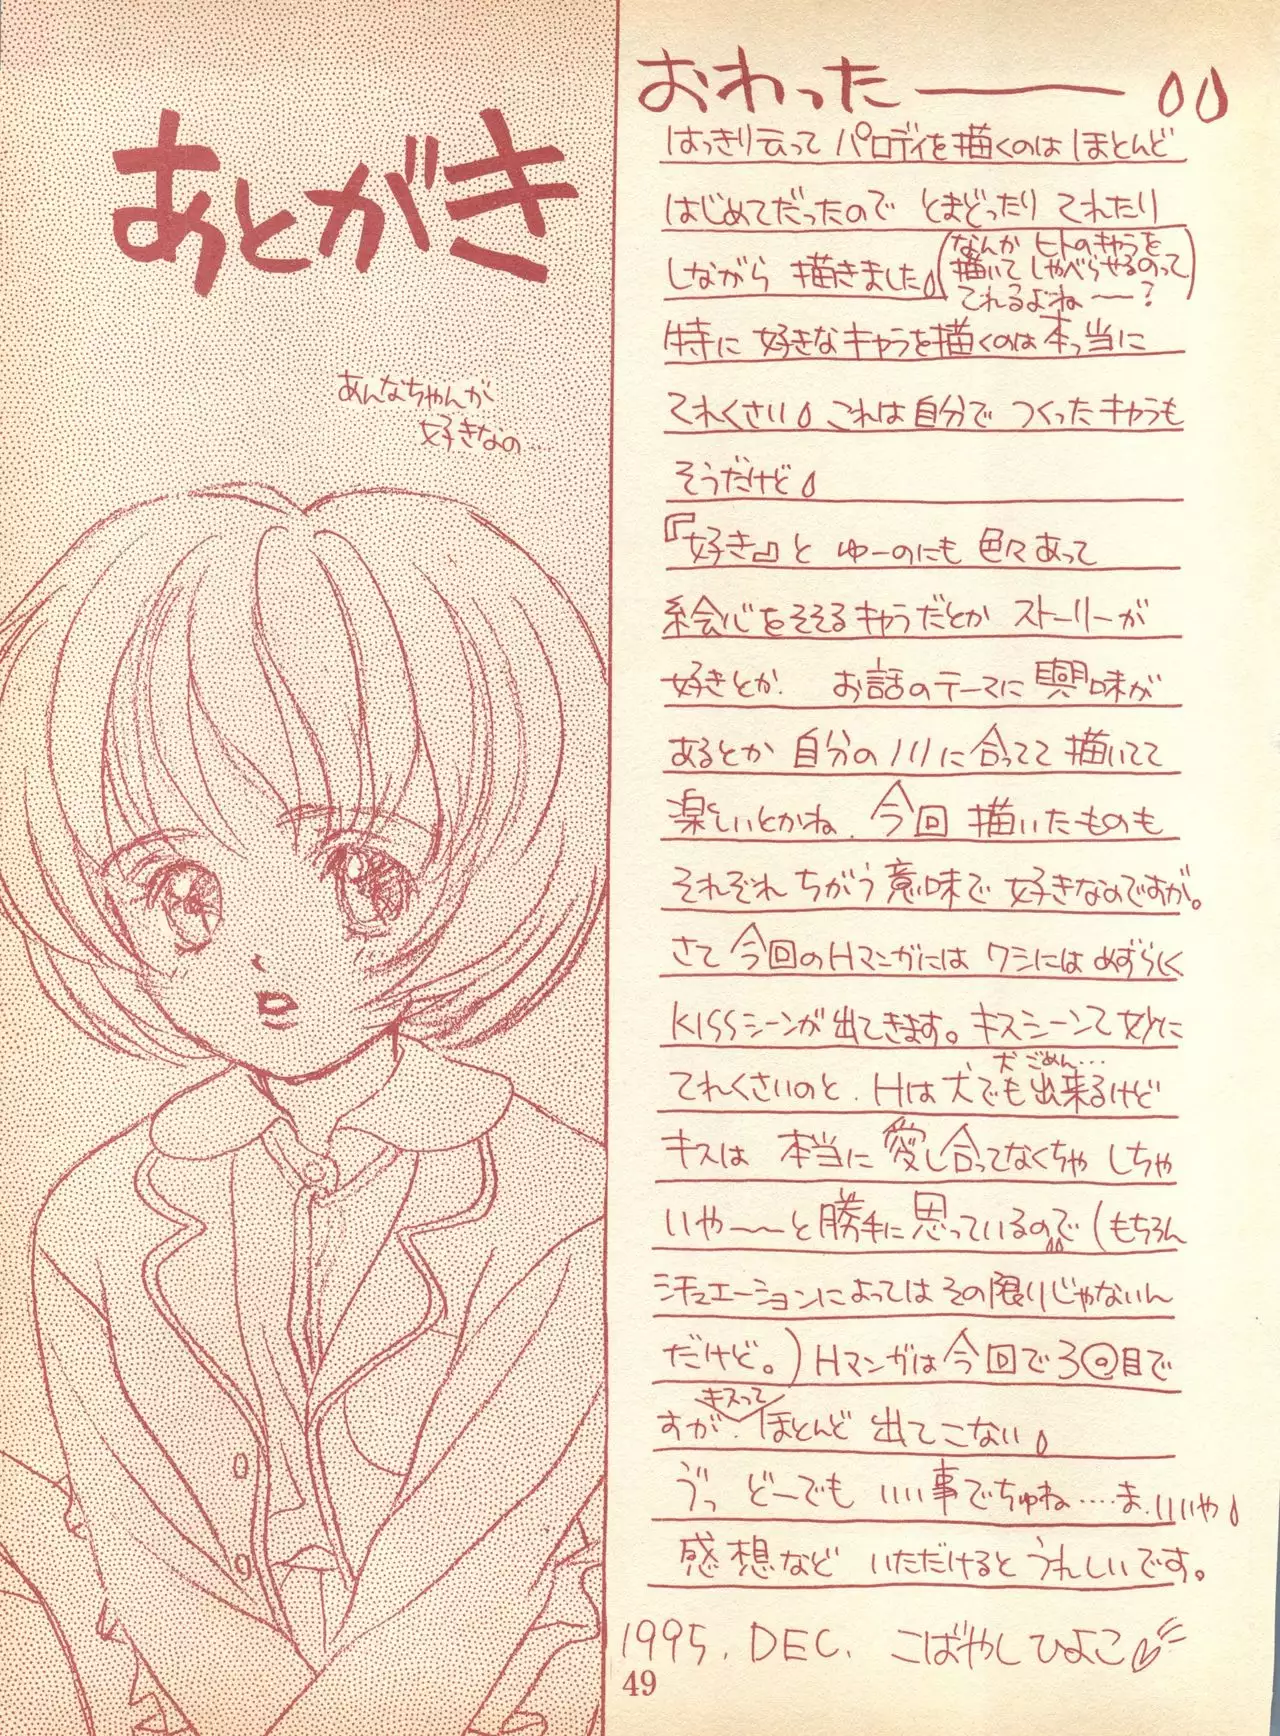 あとがき
あんなちゃんが
好きなの…
おわったー
はっきり云って パロディを描くのは ほとんど
はじめてだったので とまどったり てれたり
しながら 描きました
(なんか ヒトのキャラを
描いて しゃべらせるのって
てれるよねー?)
特に 好きなキャラを描くのは本っ当に
てれくさい これは自分で つくったキャラも
そうだけど
『好き』と ゆーのにも 色々あって
絵心をそそるキャラだとか ストーリーが
好きとか. お話のテーマに興味が
あるとか 自分のノリに合ってて 描いてて
楽しいとかね. 今回 描いたものも
それぞれ ちがう意味で 好きなのですが。
さて 今回のHマンガには ワシには めずらしく
KISSシーンが出てきます。キスシーンて妙に
犬 ごめん…
てれくさいのと. Hは犬でも出来るけど
キスは 本当に愛し合ってなくちゃ しちゃ
いや〜〜と勝手に思っているので (もちろん
シチュエーションによってはその限りじゃないん
だけど。) Hマンガは今回で3回目で
キスって
すが. ほとんど 出てこない
うっ どーでも いい事でちゅね……ま.いいや
感想など いただけるとうれしいです。
1995. DEC. こばやしひよこ
49